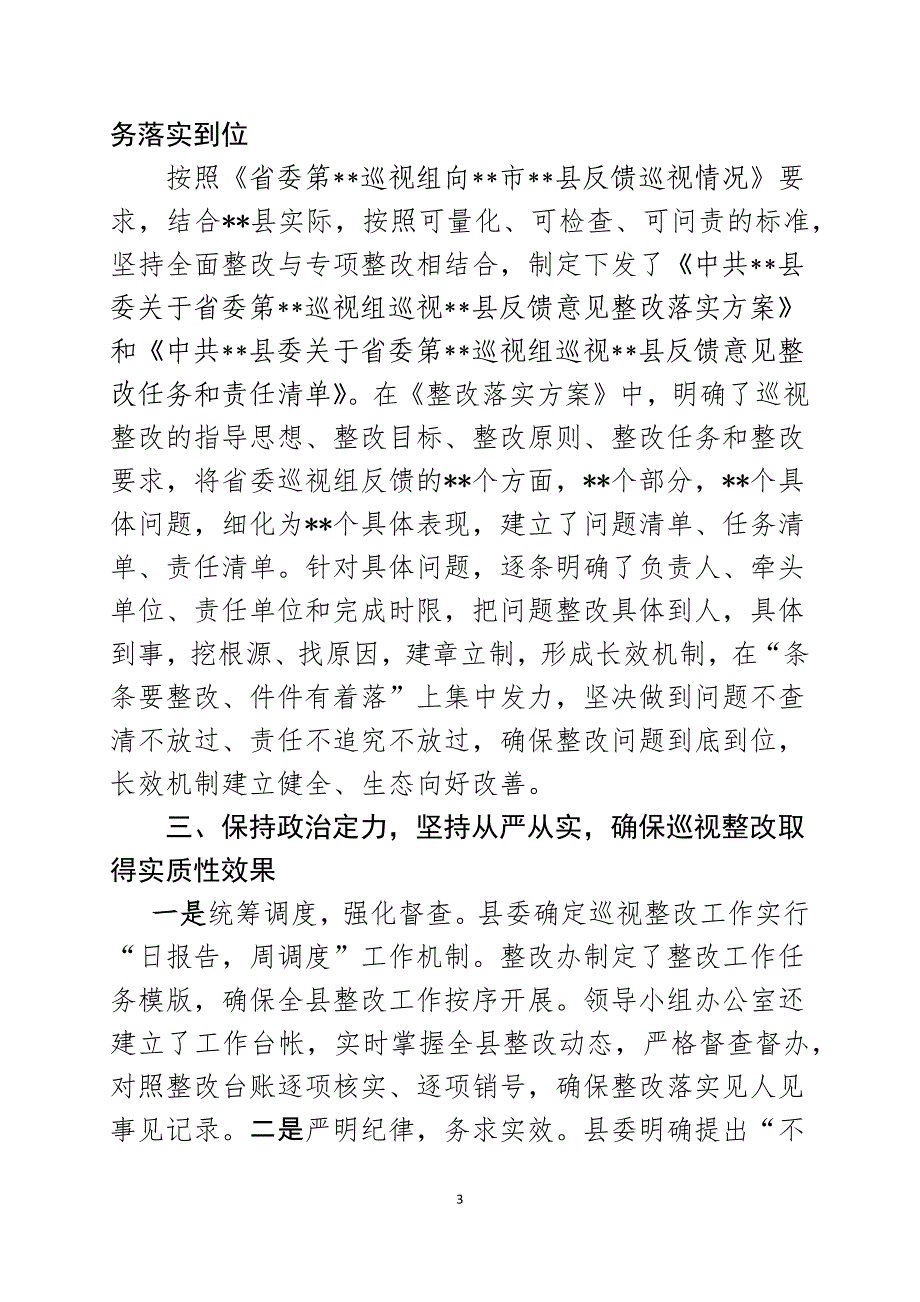 务落实到位
按照《省委第**巡视组向**市**县反馈巡视情况》要
求，结合**县实际，按照可量化、可检查、可问责的标准，
坚持全面整改与专项整改相结合，制定下发了《中共**县
委关于省委第**巡视组巡视**县反馈意见整改落实方案》
和《中共**县委关于省委第**巡视组巡视**县反馈意见整
改任务和责任清单》。在《整改落实方案》中，明确了巡视
整改的指导思想、整改目标、整改原则、整改任务和整改
要求，将省委巡视组反馈的**个方面，**个部分，**个具
体问题，细化为**个具体表现，建立了问题清单、任务清
单、责任清单。针对具体问题，逐条明确了负责人、牵头
单位、责任单位和完成时限，把问题整改具体到人，具体
到事，挖根源、找原因，建章立制，形成长效机制，在“条
条要整改、件件有着落”上集中发力，坚决做到问题不查
清不放过、责任不追究不放过，确保整改问题到底到位，
长效机制建立健全、生态向好改善。
三、保持政治定力，坚持从严从实，确保巡视整改取
得实质性效果
一是统筹调度，强化督查。县委确定巡视整改工作实行
“日报告，周调度”工作机制。整改办制定了整改工作任
务模版，确保全县整改工作按序开展。领导小组办公室还
建立了工作台帐，实时掌握全县整改动态，严格督查督办，
对照整改台账逐项核实、逐项销号，确保整改落实见人见
事见记录。二是严明纪律，务求实效。县委明确提出“不
3